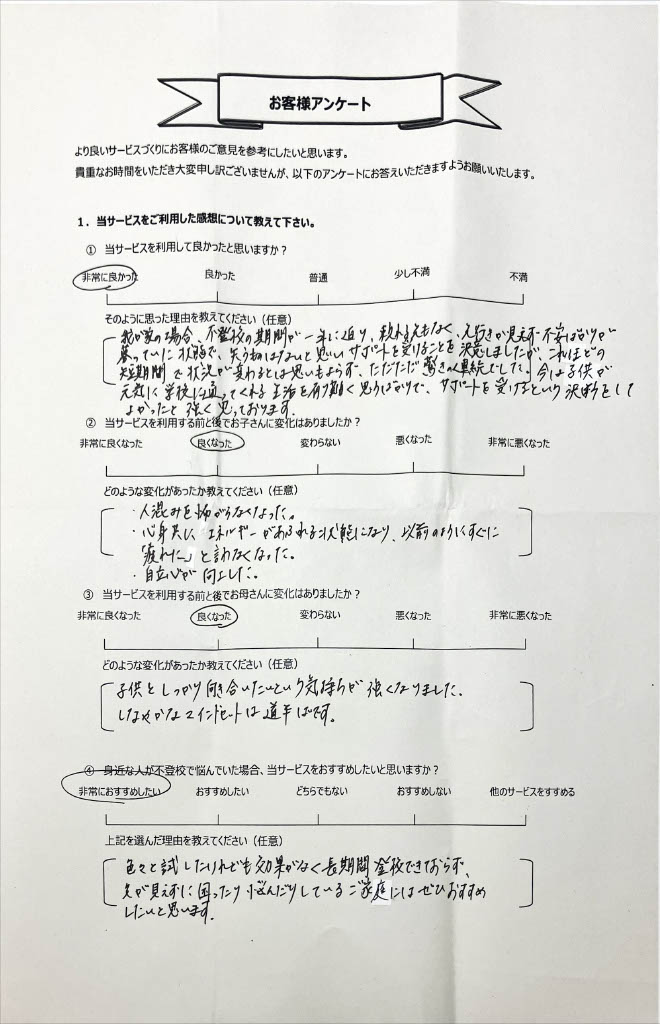 お客様アンケート
より良いサービスづくりにお客様のご意見を参考にしたいと思います。
貴重なお時間をいただき大変申し訳ございませんが、以下のアンケートにお答えいただきますようお願いいたします。
1．当サービスをご利用した感想について教えて下さい。
① 当サービスを利用して良かったと思いますか？
非常に良かった 良かった 普通 少し不満 不満
そのように思った理由を教えてください（任意）
我が家の場合、不登校の期間が一年に迫り、秋も冬もなく、先行きが見えず不安ばかりが
募っていた状態で、失うものはないと思いサポートを受けることを決意しましたが、これほどの
短期間で状況が変わるとは思いもよらず、ただただ驚きの連続でした。今は子供が
元気に学校に通ってくれる生活を有り難く思うばかりで、サポートを受けるという決断をして
よかったと強く思っております。
② 当サービスを利用する前と後でお子さんに変化はありましたか？
非常に良くなった 良くなった 変わらない 悪くなった 非常に悪くなった
どのような変化があったか教えてください（任意）
・人混みを怖がらなくなった。
・心身共に、エネルギーがあふれる状態になり、以前のようにすぐに
「疲れた」と言わなくなった。
・自立心が向上した。
③ 当サービスを利用する前と後でお母さんに変化はありましたか？
非常に良くなった 良くなった 変わらない 悪くなった 非常に悪くなった
どのような変化があったか教えてください（任意）
子供としっかり向き合いたいという気持ちが強くなりました。
しなやかなマインドセットは道半ばです。
④ 身近な人が不登校で悩んでいた場合、当サービスをおすすめしたいと思いますか？
非常におすすめしたい おすすめしたい どちらでもない おすすめしない 他のサービスをすすめる
上記を選んだ理由を教えてください（任意）
色々と試したけれども効果がなく長期間登校できておらず、
先が見えずに困ったり悩んだりしているご家庭にはぜひおすすめ
したいと思います。